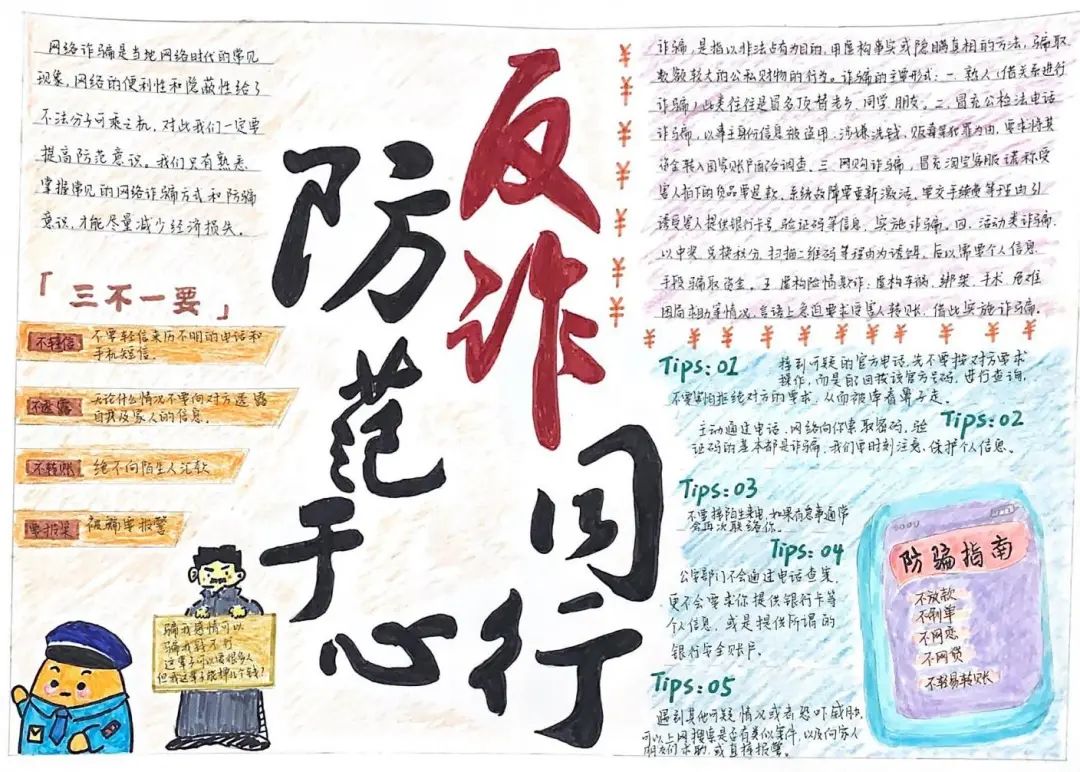 网络诈骗是当地网络时代的常见
现象,网络的便利性和隐蔽性给了
不法分子可乘之机,对此我们一定要
提高防范意识。我们只有熟悉
掌握常见的网络诈骗方式和防骗
意识,才能尽量减少经济损失。
「三不一要」
不轻信
不要轻信来历不明的电话和
手机短信。
不透露
无论什么情况不要向对方透露
自我及家人的信息。
不转账
绝不向陌生人汇款
要报案
被骗要报警
骗我感情可以
骗我钱不行
这辈子可以爱很多人
但我这辈子能挣几个钱!
反诈同行
防范于心
诈骗,是指以非法占有为目的,用虚构事实或隐瞒真相的方法,骗取
数额较大的公私财物的行为。诈骗的主要形式:一.熟人(借关系进行
诈骗)此类往往是冒名顶替老乡、同学、朋友。二.冒充公检法电话
诈骗,以事主身份信息被盗用、涉嫌洗钱、贩毒等犯罪为由,要求将其
资金转入国家账户配合调查。三.网购诈骗,冒充淘宝客服谎称受
害人拍下的货品要退款,系统故障要重新激活,要交手续费等理由引
诱受害人提供银行卡号、验证码等信息,实施诈骗。四.活动类诈骗,
以中奖、兑换积分、扫描二维码等理由为诱饵,后以需要个人信息
手段骗取资金。五.虚构险情欺诈:虚构车祸、绑架、手术、危难
困局求助等情况,言语上急迫要求受害人转账,借此实施诈骗。
Tips:01
接到可疑的官方电话,先不要按对方要求
操作,而是能回拨该官方号码,进行查询,
不要害怕拒绝对方的要求,从而被牵着鼻子走。
Tips:02
主动通过电话、网络向你索取密码、验
证码的基本都是诈骗,我们要时刻注意,保护个人信息。
Tips:03
不要接陌生来电,如果有急事通常
会再次联络你。
Tips:04
公安部门不会通过电话查案,
更不会要求你提供银行卡等
个人信息,或是提供所谓的
银行安全账户。
Tips:05
遇到其他可疑情况或者恐吓威胁,
可以上网搜索是否有类似案件,以及向家人
朋友们求助,或直接报警。
防骗指南
不放款
不刷单
不网恋
不网贷
不轻易转账